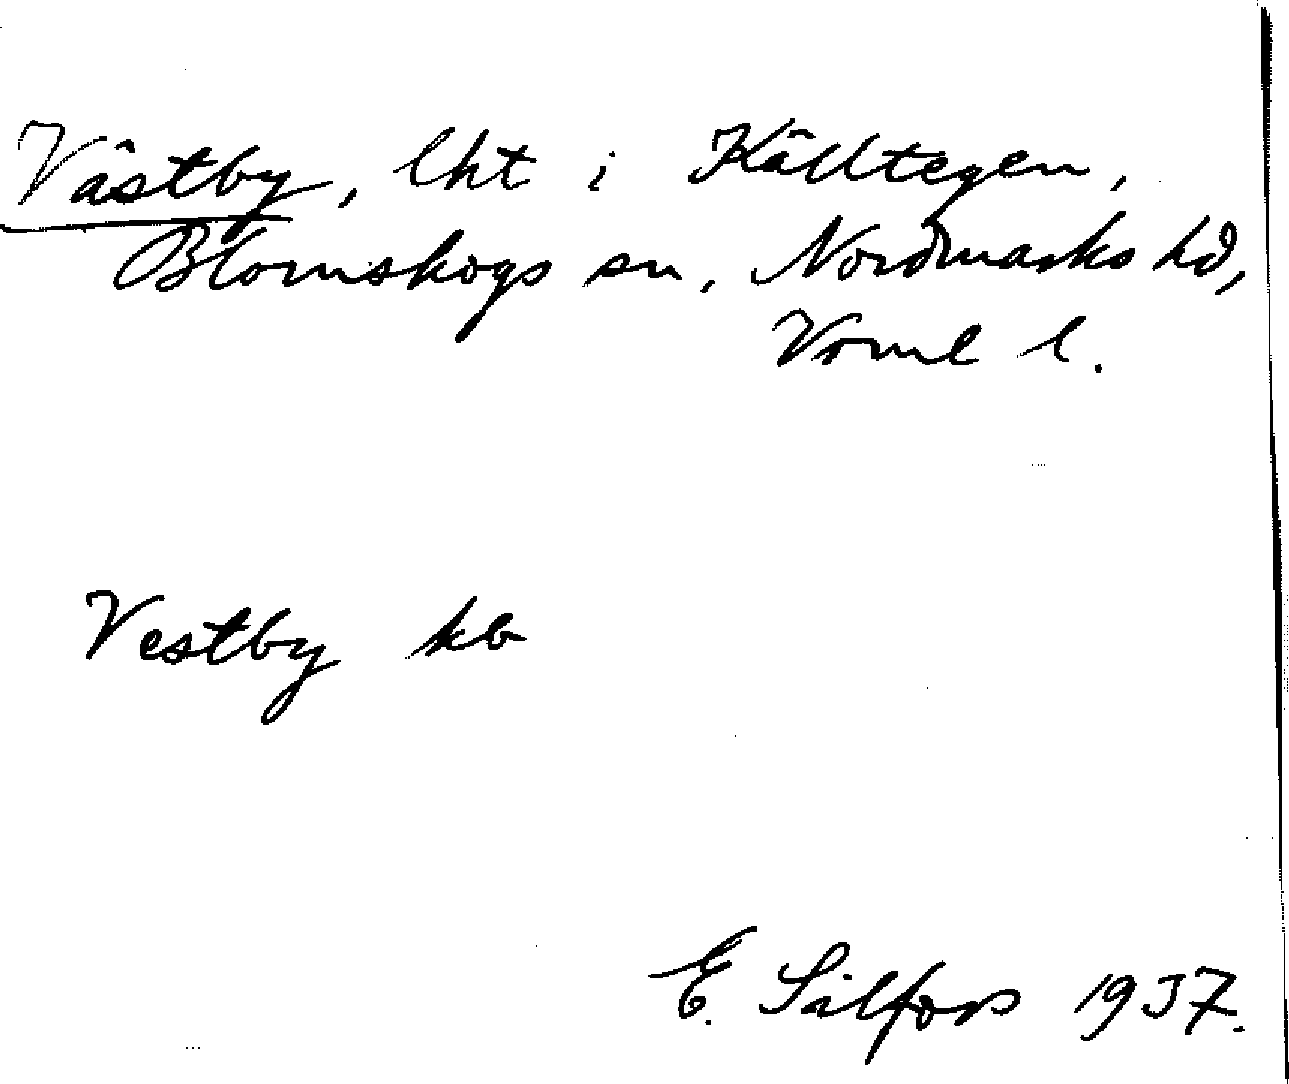 Västby, lht i Källtegen,
Blomskogs sn, Nordmarks hd,
Vrml l.
Vestby kb
E. Sälfors 1937.